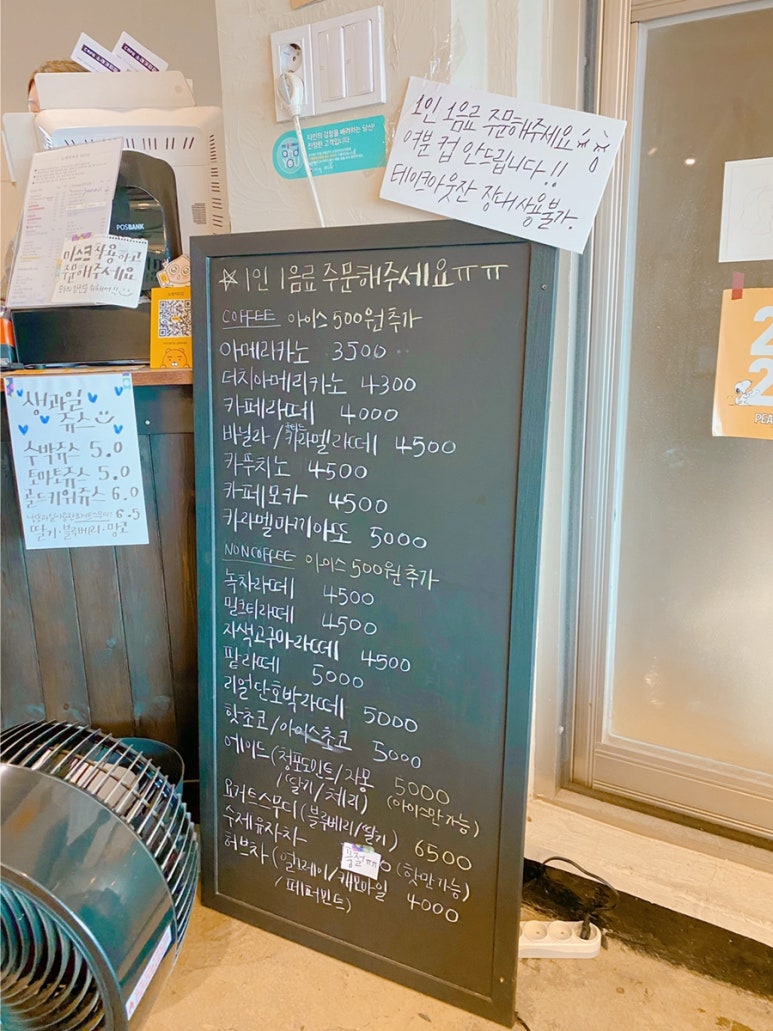 1인 1음료 주문해주세요ㅠㅠ
여분 컵 안드립니다!!
테이크아웃잔 장내 사용불가.
POSBANK
마스크착용하고
주문해주세요
☆1인 1음료 주문해주세요ㅠㅠ
COFFEE 아이스 500원 추가
아메리카노 3500
더치아메리카노 4300
카페라떼 4000
바닐라/카라멜라떼 4500
카푸치노 4500
카페모카 4500
카라멜마끼아또 5000
NONCOFFEE 아이스 500원 추가
녹차라떼 4500
밀크티라떼 4500
자색고구마라떼 4500
팥라떼 5000
리얼단호박라떼 5000
핫초코/아이스초코 5000
에이드(청포도민트/자몽 5000
/딸기/체리) (아이스만 가능)
요거트스무디(블루베리/딸기) 6500
수제유자차 품절ㅠㅠ 0 (핫만가능)
허브차(얼그레이/캐모마일 4000
/페퍼민트)
생과일
쥬스
수박쥬스 5.0
토마토쥬스 5.0
골드키위쥬스 6.0
6.5
딸기·블루베리·망고
PEA